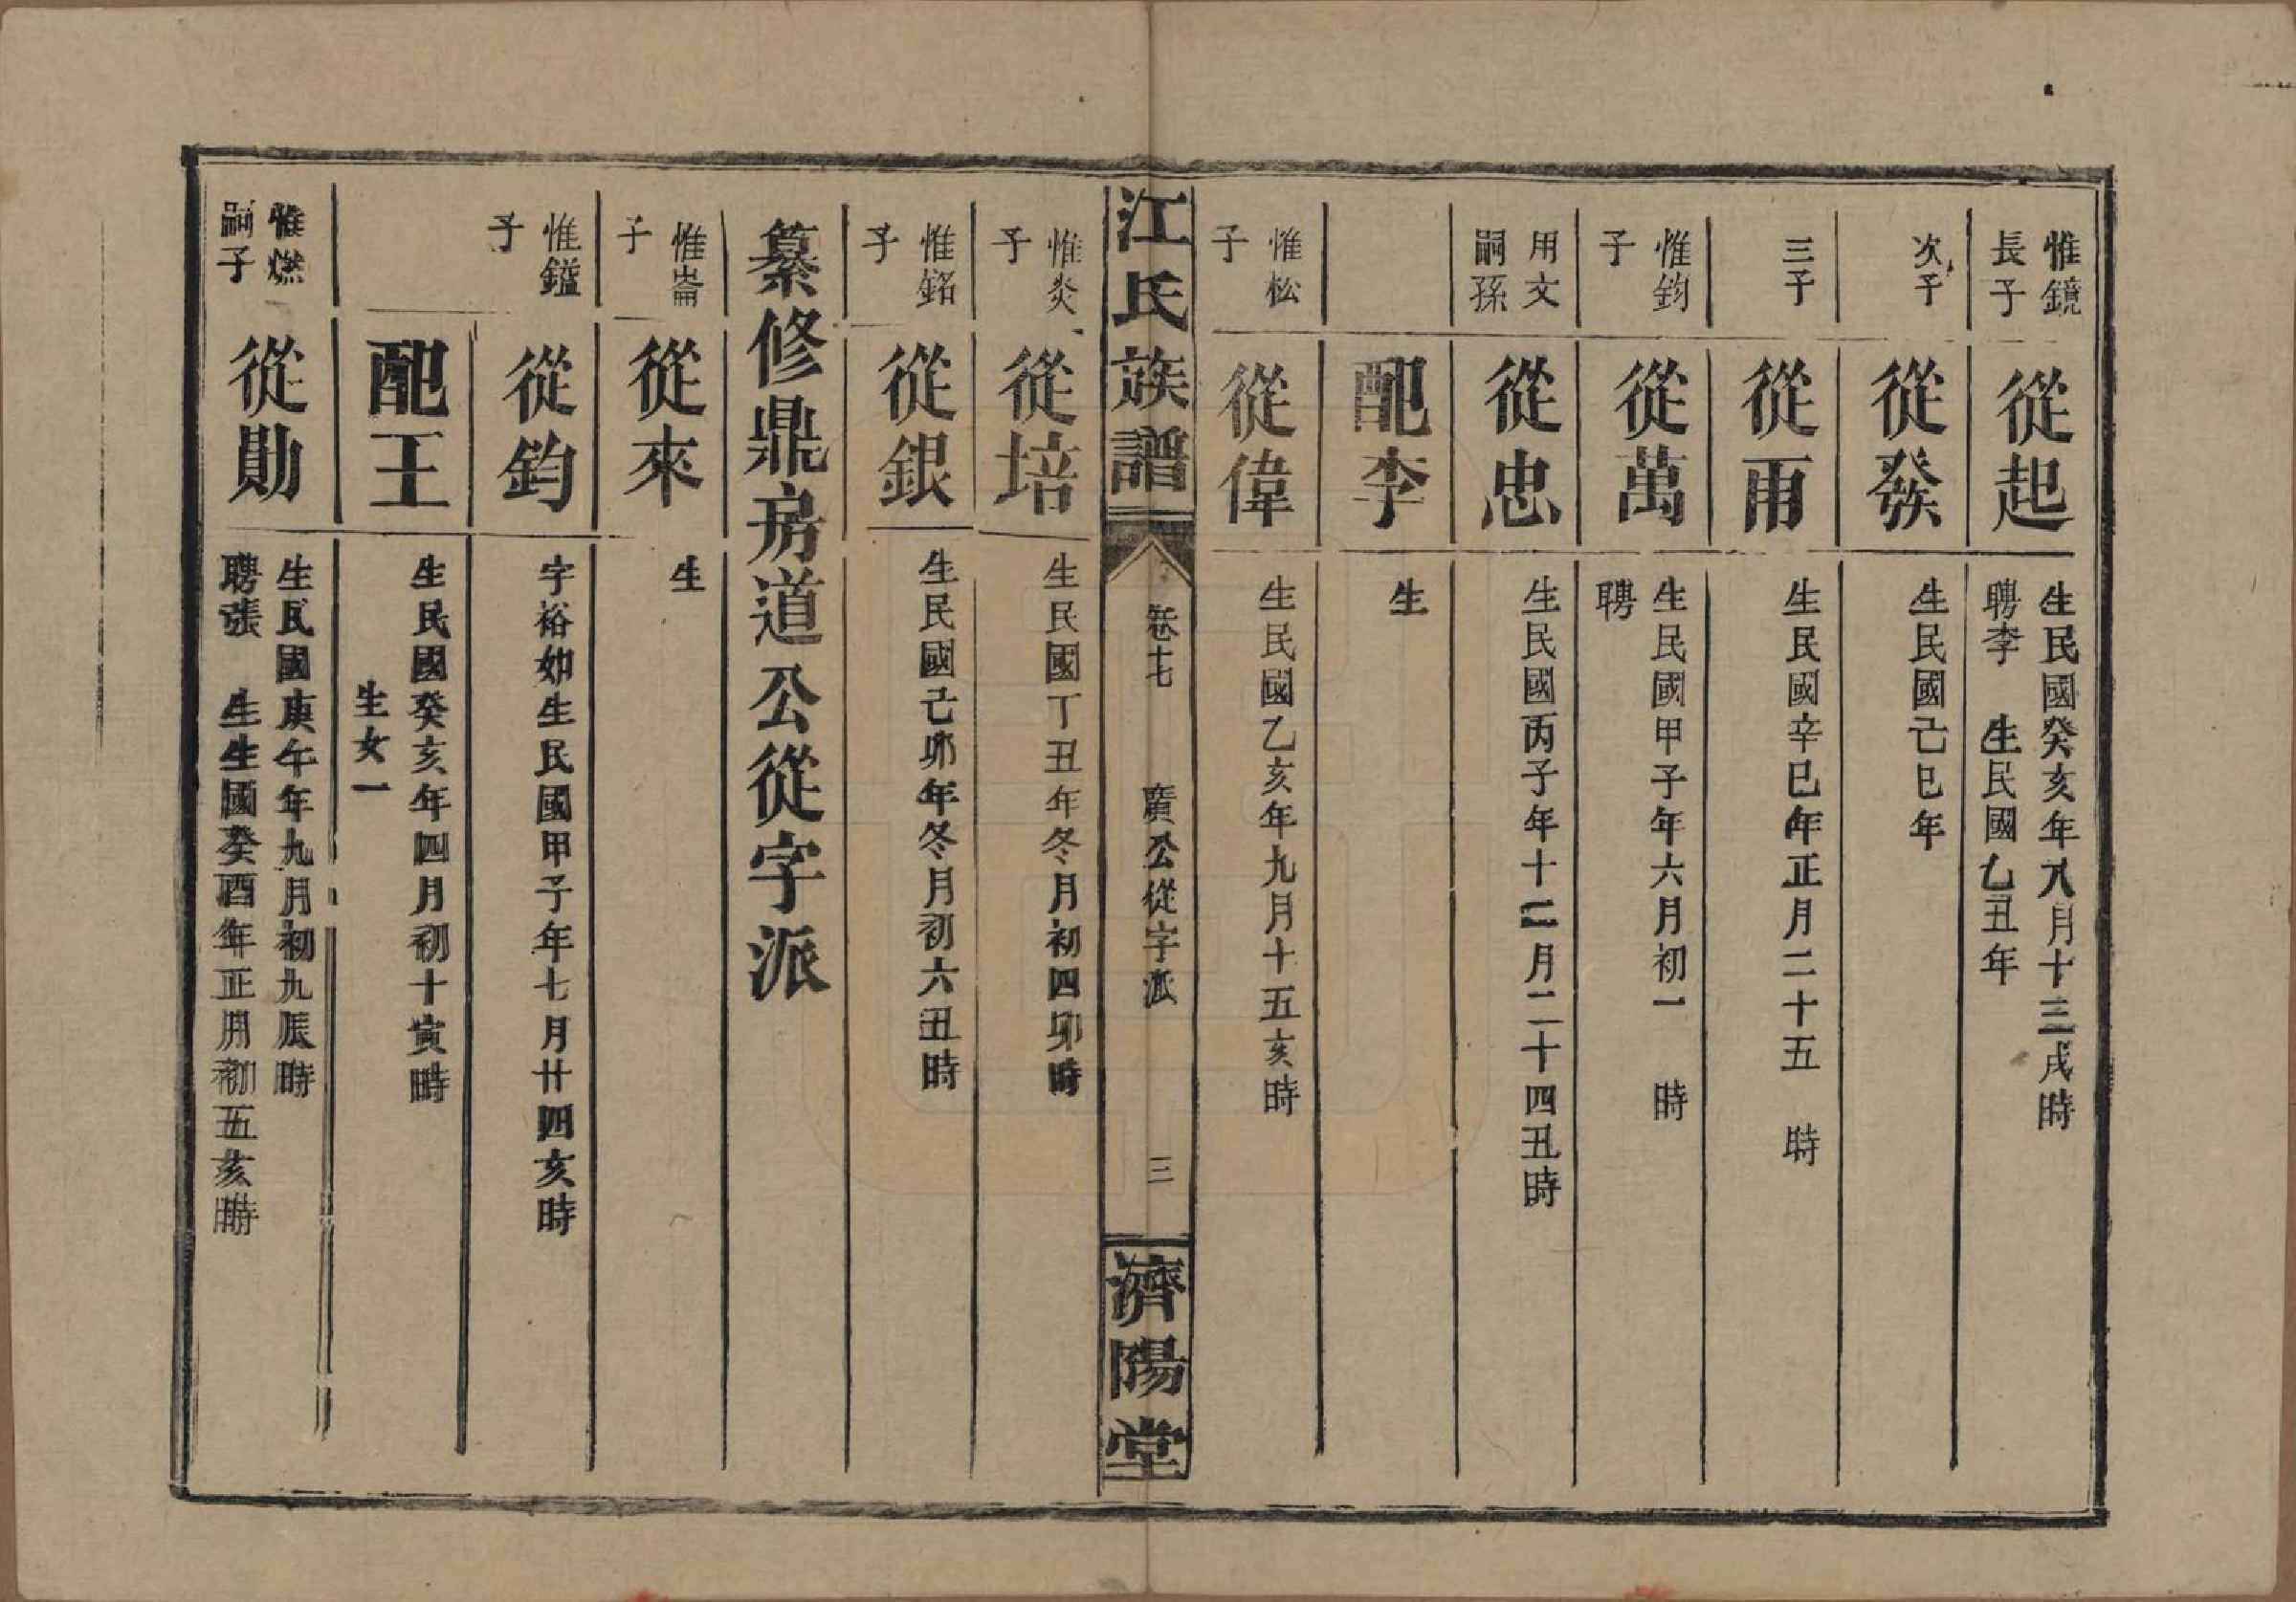 惟鏡
長子
從起
生民國癸亥年八月十三戌時
聘李 生民國乙丑年
次子
從發
生民國己巳年
三子
從雨
生民國辛巳年正月二十五 時
惟鈞
子
從萬
生民國甲子年六月初一 時
聘
用文
嗣孫
從忠
生民國丙子年十二月二十四丑時
配李
生
惟松
子
從偉
生民國乙亥年九月十五亥時
江氏族譜
卷十七 廣公從字派 三
濟陽堂
惟炎
子
從培
生民國丁丑年冬月初四卯時
惟銘
子
從銀
生民國己卯年冬月初六丑時
纂修鼎房道公從字派
惟崙
子
從來
生
惟鎰
子
從鈞
字裕如生民國甲子年七月廿四亥時
配王
生民國癸亥年四月初十寅時
生女一
惟燃
嗣子
從勛
生民國庚午年九月初九辰時
聘張 生生國癸酉年正月初五亥時